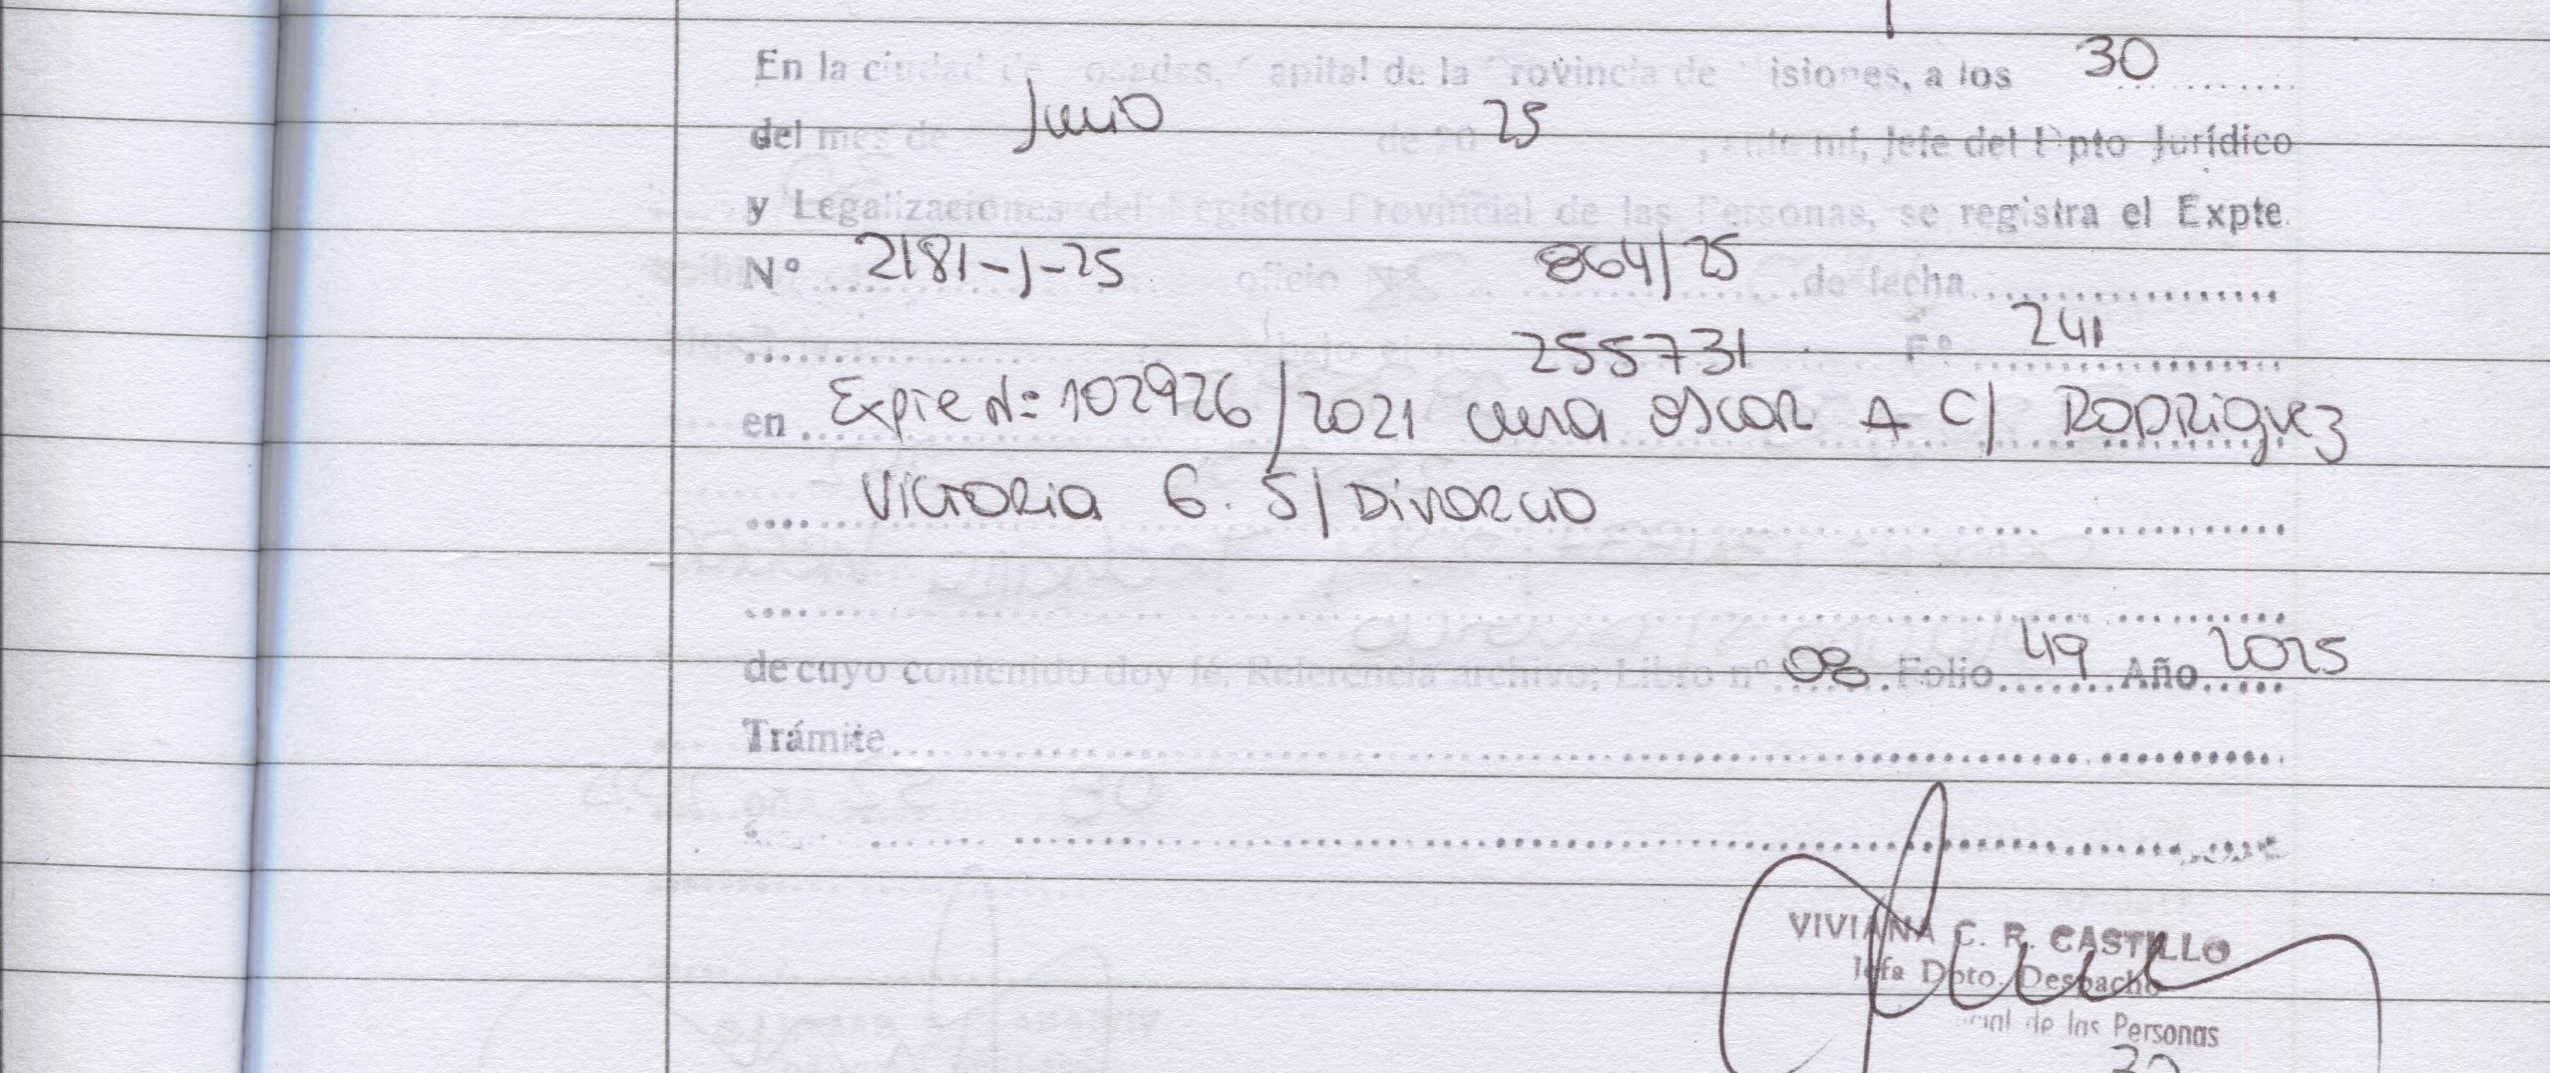 En la ciudad de Posadas, Capital de la Provincia de Misiones, a los 30
del mes de Junio de 20 25, ante mí, Jefe del Dpto Jurídico
y Legalizaciones del Registro Provincial de las Personas, se registra el Expte.
Nº 2181-J-25 oficio Nº 864/25 de fecha
bajo el nº 255731 Fº 241
en Expte Nº 102926/2021 Oscar A C/ RODRIGUEZ
VICTORIA G. S/ DIVORCIO
de cuyo contenido doy fé. Referencia archivo: Libro nº 08 Folio 49 Año 2025
Trámite
VIVIANA C. R. CASTILLO
Jefa Dpto. Despacho
de las Personas